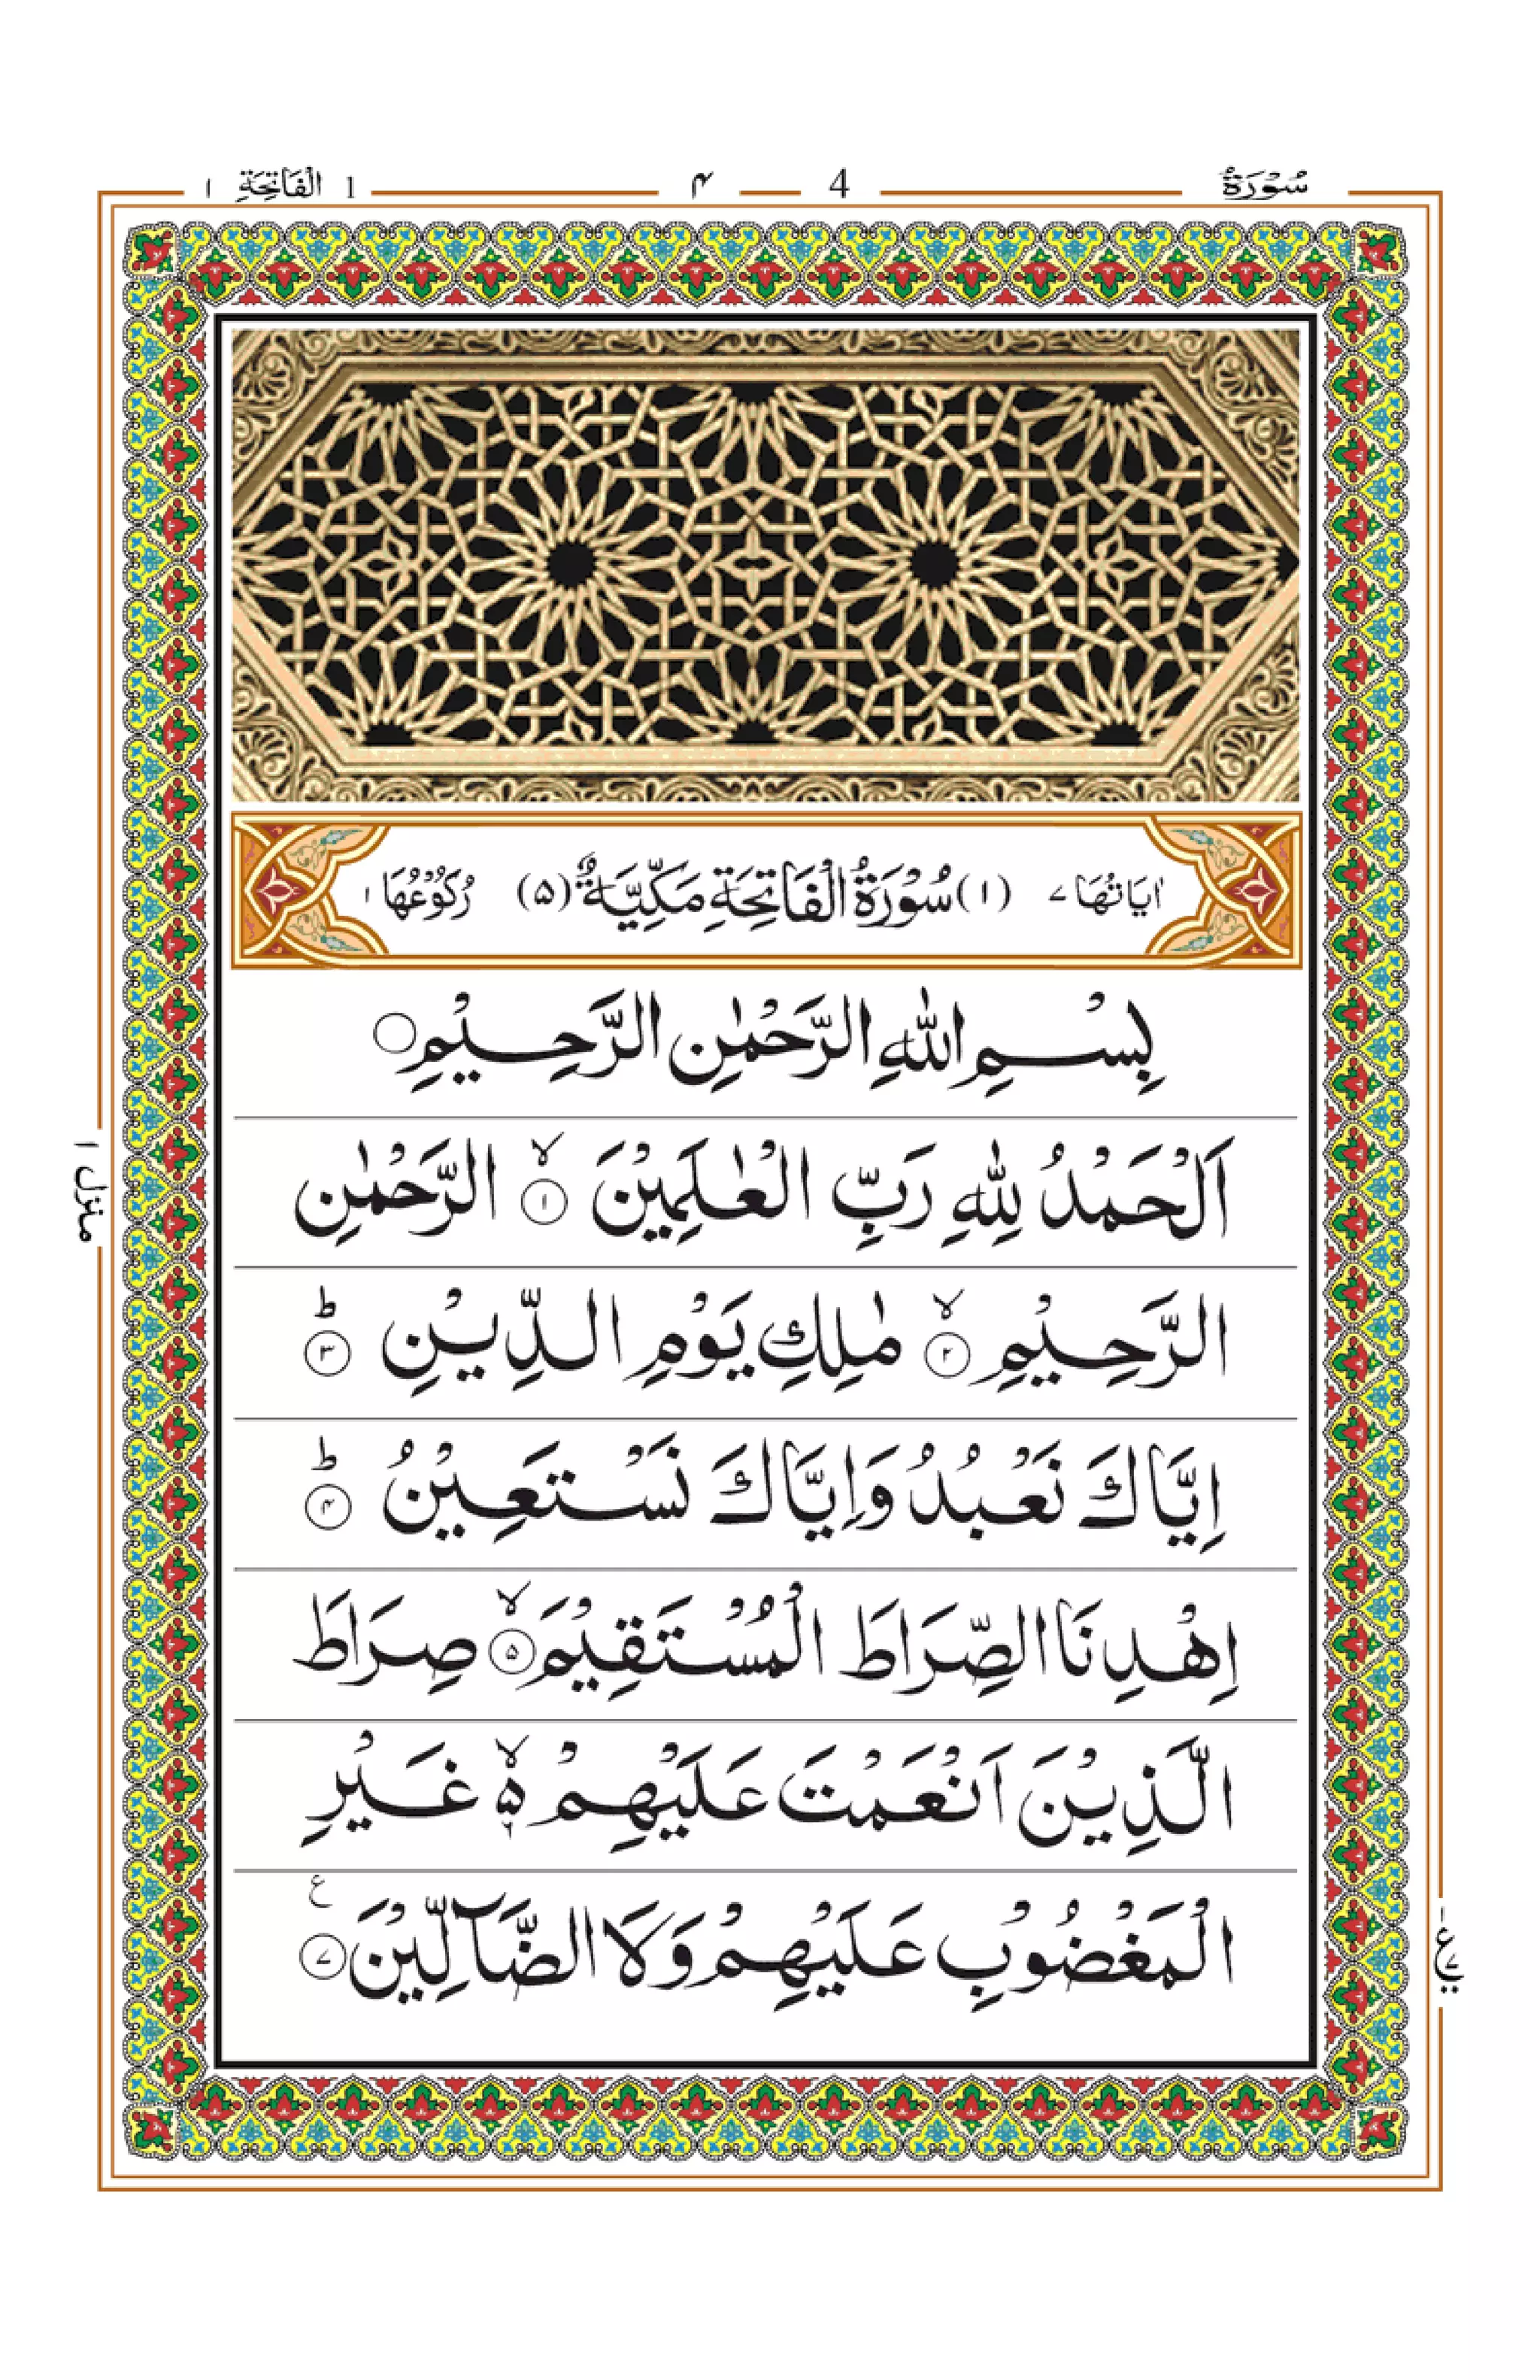 سُوْرَةُ 4 ۴ 1 الْفَاتِحَةِ ۱
اٰيَاتُهَا ۷ (۱) سُوْرَةُ الْفَاتِحَةِ مَكِّيَّةٌ (۵) رُكُوْعُهَا ۱
بِسْمِ اللّٰهِ الرَّحْمٰنِ الرَّحِيْمِ ۝
اَلْحَمْدُ لِلّٰهِ رَبِّ الْعٰلَمِيْنَ ۙ﴿۱﴾ الرَّحْمٰنِ
الرَّحِيْمِ ۙ﴿۲﴾ مٰلِكِ يَوْمِ الدِّيْنِ ؕ﴿۳﴾
اِيَّاكَ نَعْبُدُ وَاِيَّاكَ نَسْتَعِيْنُ ؕ﴿۴﴾
اِهْدِنَا الصِّرَاطَ الْمُسْتَقِيْمَ ۙ﴿۵﴾ صِرَاطَ
الَّذِيْنَ اَنْعَمْتَ عَلَيْهِمْ ۙ۵ غَيْرِ
الْمَغْضُوْبِ عَلَيْهِمْ وَلَا الضَّآلِّيْنَ ﴿۷﴾ ع
منزل ۱